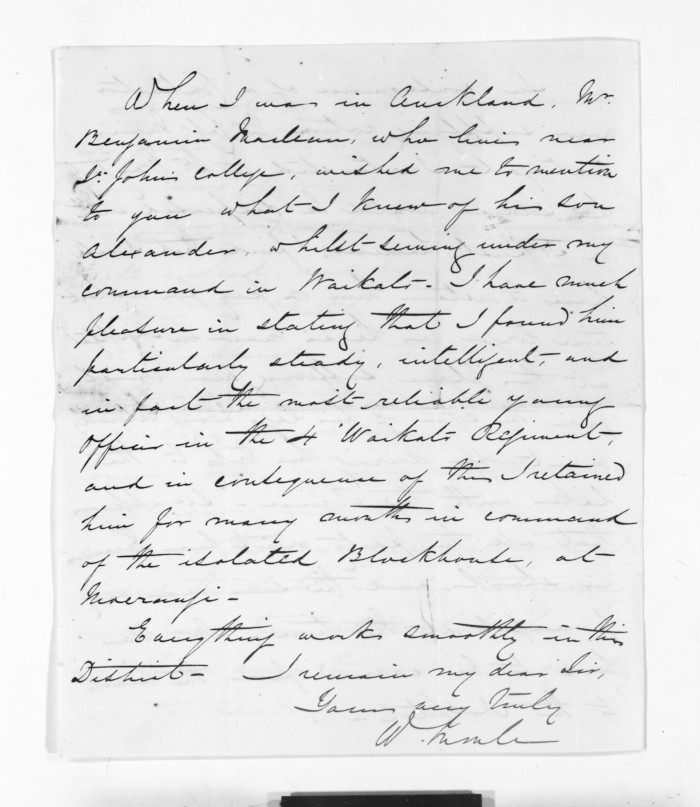 When I was in Auckland, Mr.
Benjamin Maclean, who lives near
St. John's College, wished me to mention
to you what I knew of his son
Alexander, whilst serving under my
command in Waikato - I have much
pleasure in stating that I found him
particularly steady, intelligent, and
in fact the most reliable young
Officer in the 4' Waikato Regiment,
and in consequence of this I retained
him for many months in command
of the isolated Blockhouse, at
Everything works smoothly in this
District - I remain my dear Sir,
Yours very truly
W.